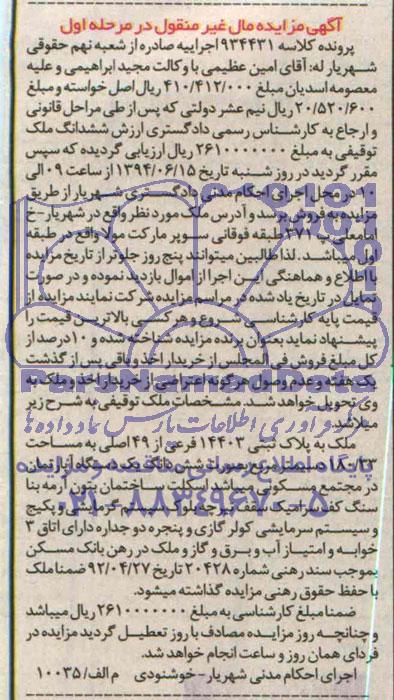 آگهی مزایده مال غیر منقول در مرحله اول
پرونده کلاسه ۹۳۴۴۳۱ اجراییه صادره از شعبه نهم حقوقی
شهریار له: آقای امین عظیمی با وکالت مجید ابراهیمی و علیه
معصومه اسدیان مبلغ ۴۱۰/۴۱۲/۰۰۰ ریال اصل خواسته و مبلغ
۲۰/۵۲۰/۶۰۰ ریال نیم عشر دولتی که پس از طی مراحل قانونی
و ارجاع به کارشناس رسمی دادگستری ارزش ششدانگ ملک
توقیفی به مبلغ ۲۶۱۰۰۰۰۰۰۰ ریال ارزیابی گردیده که سپس
مقرر گردید در روز شنبه تاریخ ۱۳۹۴/۰۶/۱۵ از ساعت ۰۹ الی
۱۰ در محل اجرای احکام مدنی دادگستری شهریار از طریق
مزایده به فروش برسد و آدرس ملک مورد نظر واقع در شهریار-خ
امامعلی پ ۳۷۱ طبقه فوقانی سوپر مارکت مولا واقع در طبقه
اول میباشد. لذا طالبین میتوانند پنج روز جلوتر از تاریخ مزایده
با اطلاع و هماهنگی این اجرا از اموال بازدید نموده و در صورت
تمایل در تاریخ یاد شده در مراسم مزایده شرکت نمایند مزایده از
قیمت پایه کارشناسی شروع و هر کسی بالاترین قیمت را
پیشنهاد نماید بعنوان برنده مزایده شناخته شده و ۱۰درصد از
کل مبلغ فروش فی المجلس از خریدار اخذ و باقی پس از گذشت
یک هفته و عدم وصول هرگونه اعتراضی از خریدار اخذ و ملک به
وی تحویل خواهد شد. مشخصات ملک توقیفی به شرح زیر
میباشد:
ملک به پلاک ثبتی ۱۴۴۰۳ فرعی از ۴۹ اصلی به مساحت
متر مربع بصورت شش دانگ یک دستگاه آپارتمان
در مجتمع مسکونی میباشد اسکلت ساختمان بتون آرمه بنا
سنگ کف سرامیک سقف تیرچه بلوک سیستم گرمایشی پکیج
و سیستم سرمایشی کولر گازی و پنجره دو جداره دارای اتاق ۳
خوابه و امتیاز آب و برق و گاز و ملک در رهن بانک مسکن
بموجب سند رهنی شماره ۲۰۴۲۸ تاریخ ۹۲/۰۴/۲۷ ضمنا ملک
با حفظ حقوق رهنی مزایده گذاشته میشود.
ضمنا مبلغ کارشناسی به مبلغ ۲۶۱۰۰۰۰۰۰۰ ریال میباشد
و چنانچه روز مزایده مصادف با روز تعطیل گردید مزایده در
فردای همان روز و ساعت انجام خواهد شد.
اجرای احکام مدنی شهریار-خوشنودی م الف/ ۱۰۰۳۵